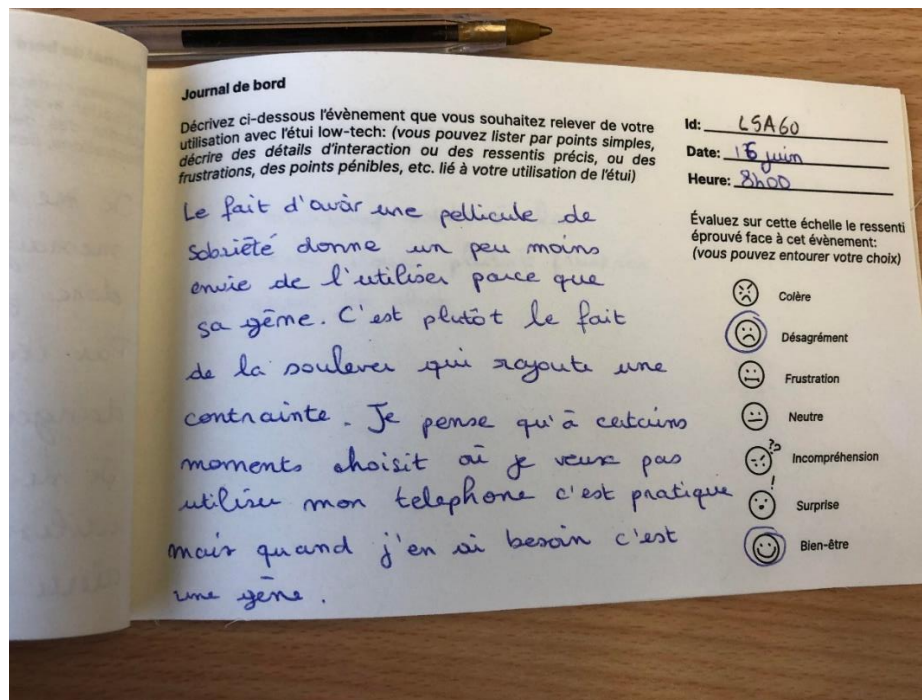 Journal de bord
Décrivez ci-dessous l'évènement que vous souhaitez relever de votre
utilisation avec l'étui low-tech: (vous pouvez lister par points simples,
décrire des détails d'interaction ou des ressentis précis, ou des
frustrations, des points pénibles, etc. lié à votre utilisation de l'étui)
Le fait d'avoir une pellicule de
sobriété donne un peu moins
envie de l'utiliser parce que
sa gêne. C'est plutôt le fait
de la soulever qui rajoute une
contrainte. Je pense qu'à certains
moments choisit où je veux pas
utiliser mon telephone c'est pratique
mais quand j'en ai besoin c'est
une gêne.
Id: LSA60
Date: 16 juin
Heure: 8h00
Évaluez sur cette échelle le ressenti
éprouvé face à cet évènement:
(vous pouvez entourer votre choix)
Colère
Désagrément
Frustration
Neutre
Incompréhension
Surprise
Bien-être